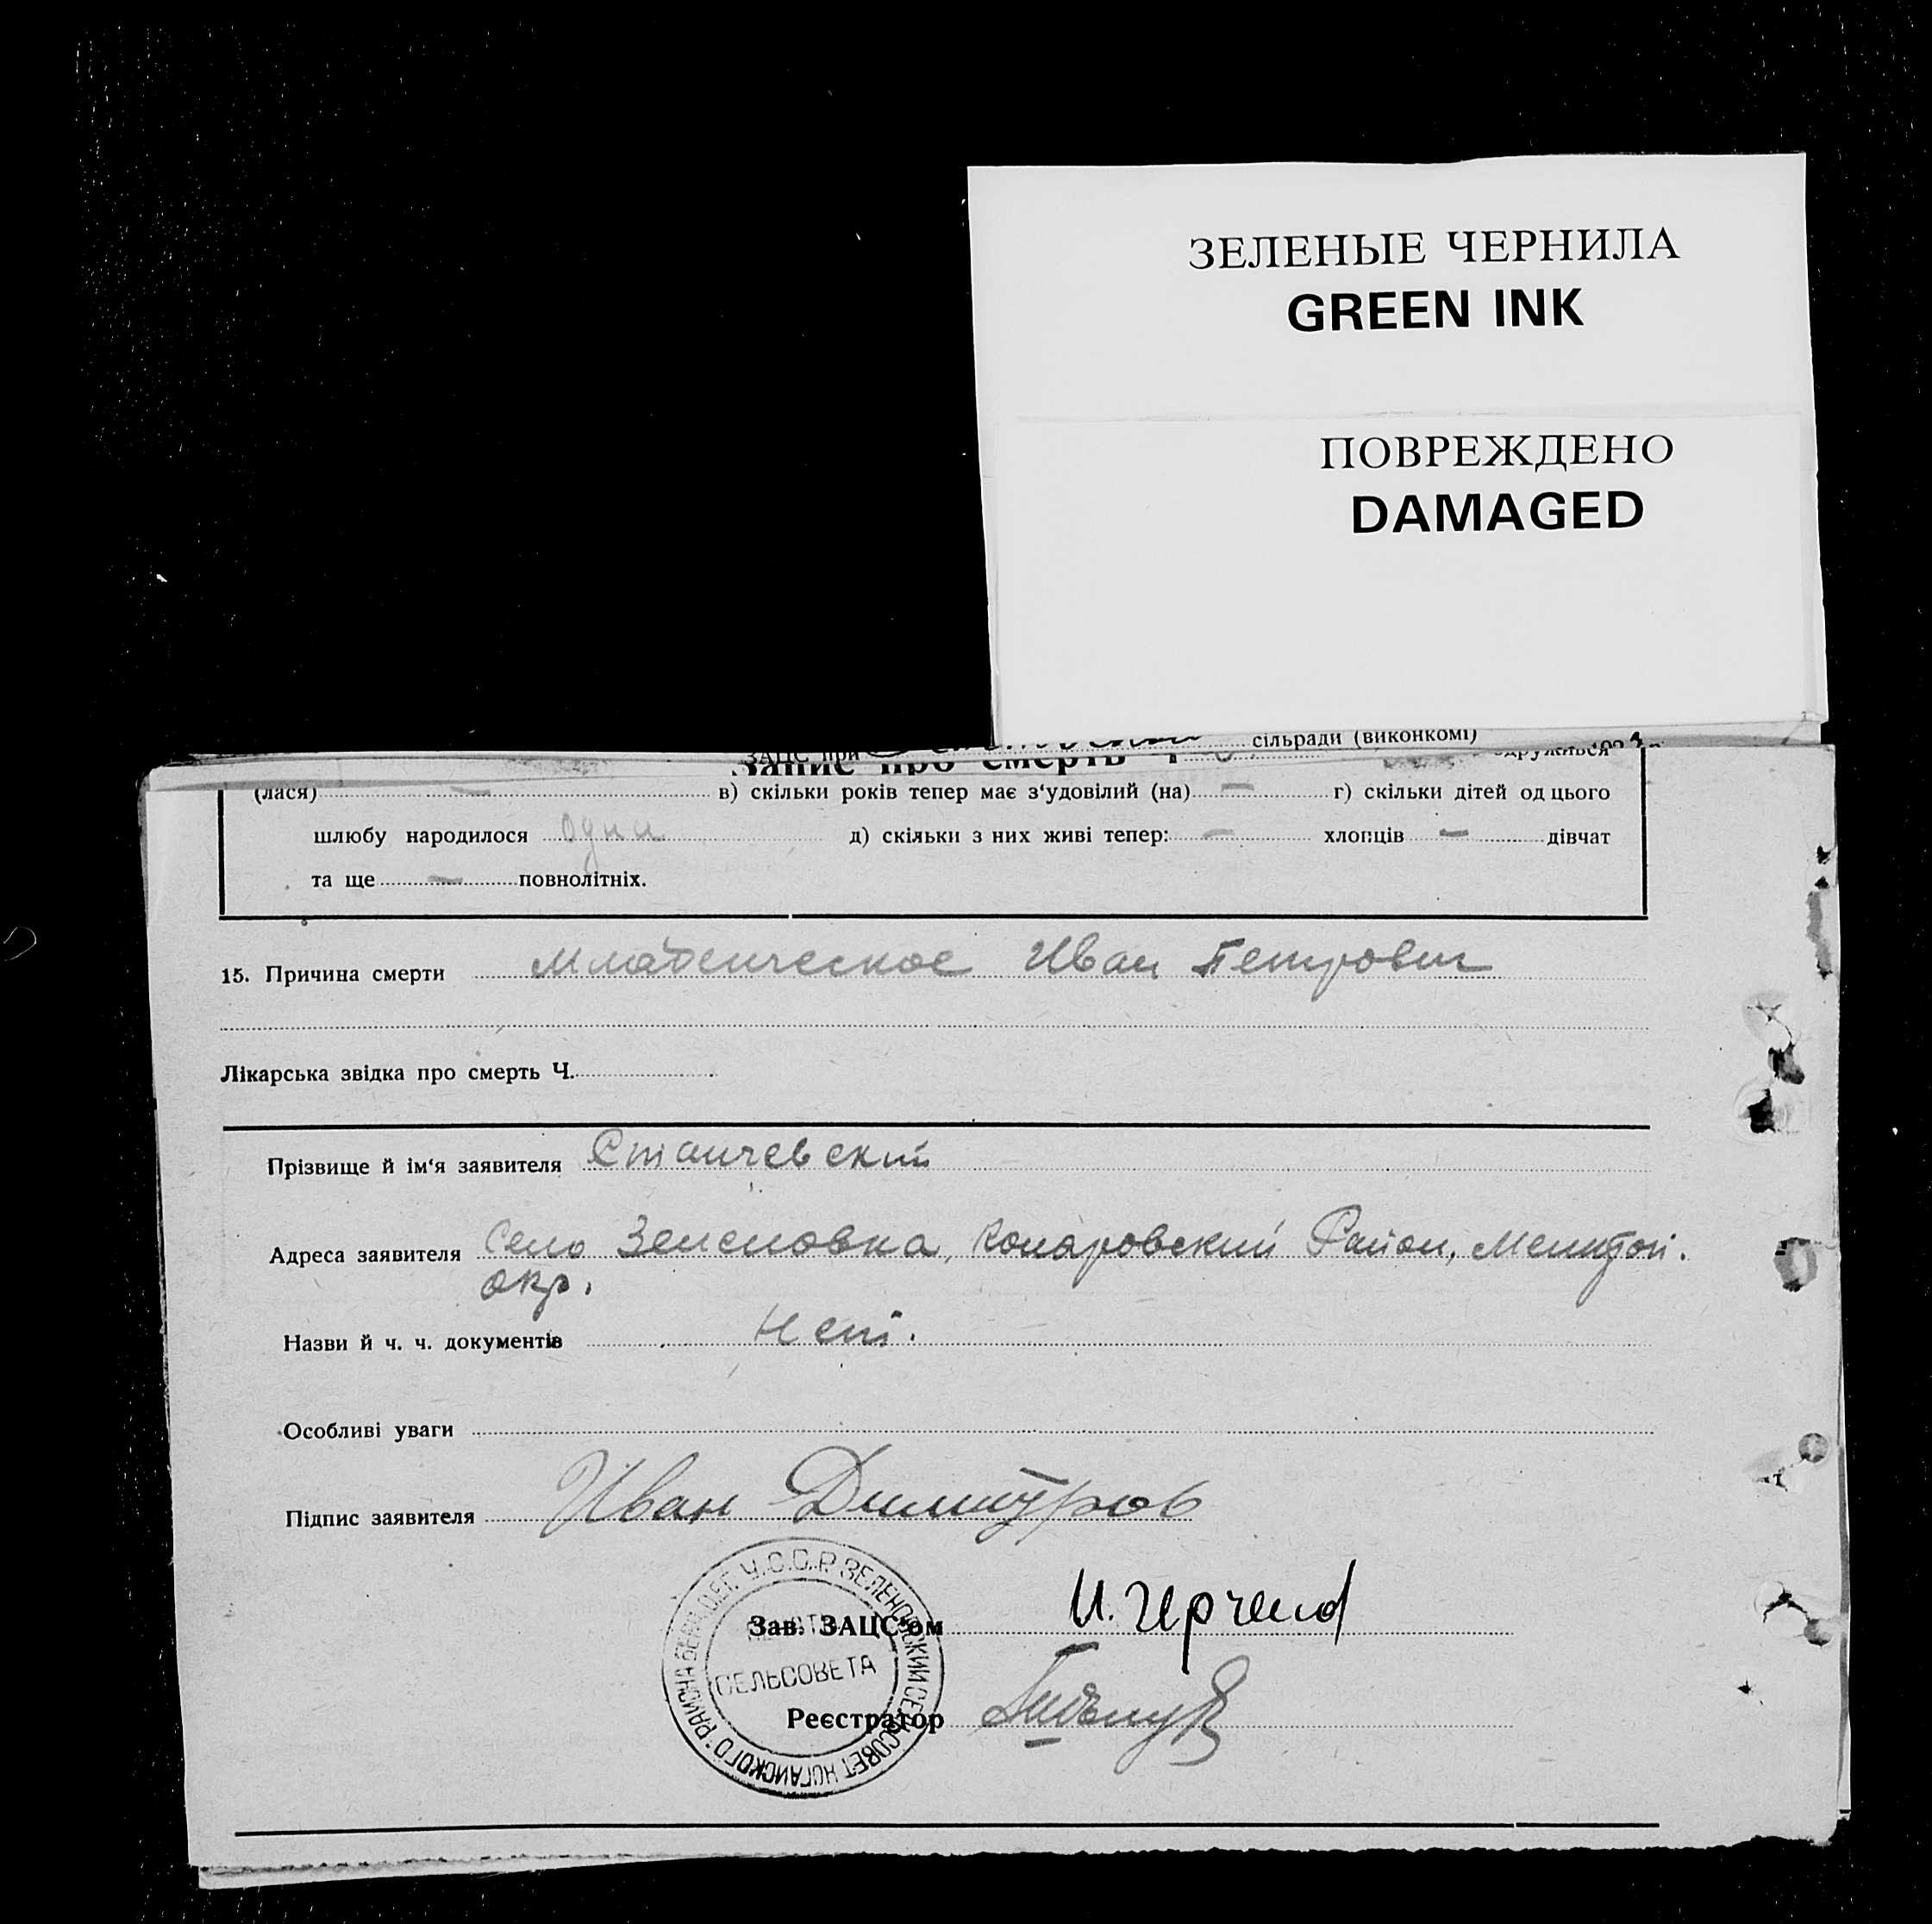 ЗЕЛЕНЫЕ ЧЕРНИЛА
GREEN INK
ПОВРЕЖДЕНО
DAMAGED
ЗАЦС при сільради (виконкомі)
Запис про смерть ч.
одружився
(лася) — в) скільки років тепер має з'удовілий (на) — г) скільки дітей од цього
шлюбу народилося один д) скільки з них живі тепер: — хлопців — дівчат
та ще — повнолітніх.
15. Причина смерти младенческое Иван Петрович
Лікарська звідка про смерть Ч.
Прізвище й ім'я заявителя Станчевский
Адреса заявителя Село Зеленовка, Коларовский Район, Мелитоп.
окр.
Назви й ч. ч. документів Нет.
Особливі уваги
Підпис заявителя Иван Димитров
У.С.С.Р. ЗЕЛЕНОВСКИЙ СЕЛЬСОВЕТ НОГАЙСКОГО РАЙОНА
СЕЛЬСОВЕТА
Зав. ЗАЦС'ом И.
Реєстратор